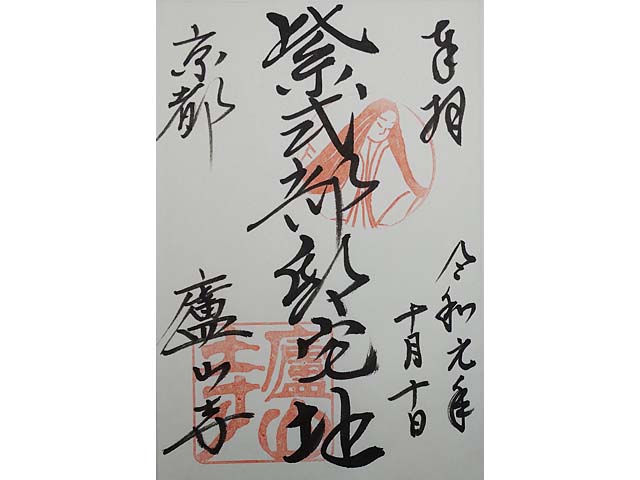 奉拝
令和元年
十月十日
紫式部邸宅地
京都
廬山寺
廬山寺